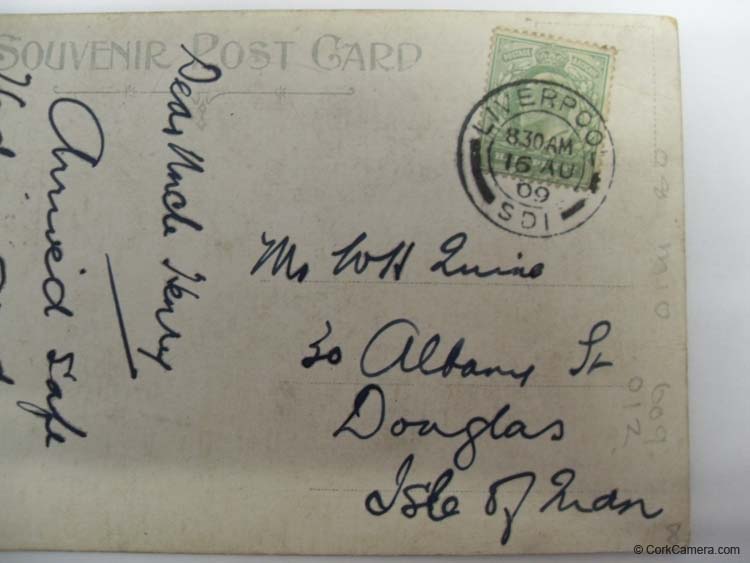 SOUVENIR POST CARD
Dear Uncle Henry
Arriveid safe
LIVERPOO
8.30AM
16 AU
09
SDI
Mr W H Quine
30 Albany St
Douglas
Isle of Man
609
012
8
© CorkCamera.com